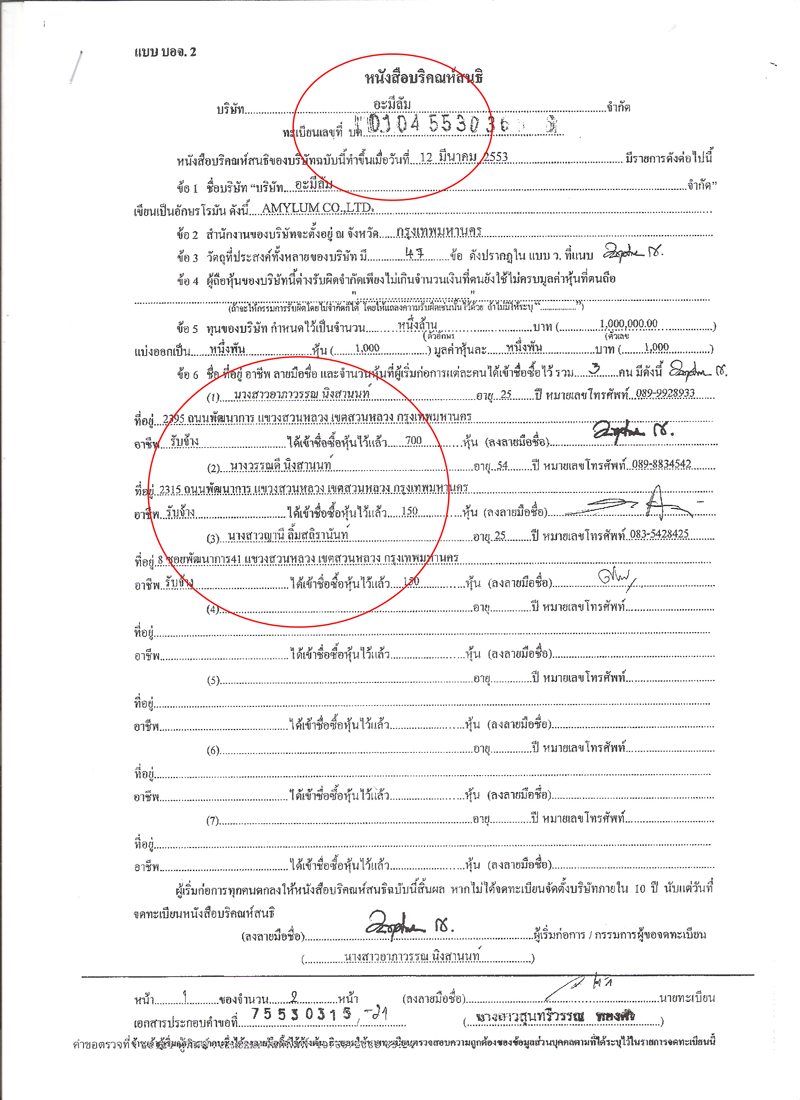 แบบ บอจ. 2
หนังสือบริคณห์สนธิ
บริษัท อะมีลัม จำกัด
ทะเบียนเลขที่ บค. 010455303
หนังสือบริคณห์สนธิของบริษัทฉบับนี้ทำขึ้นเมื่อวันที่ 12 มีนาคม 2553 มีรายการดังต่อไปนี้
ข้อ 1 ชื่อบริษัท "บริษัท อะมีลัม จำกัด"
เขียนเป็นอักษรโรมัน ดังนี้ AMYLUM CO.,LTD.
ข้อ 2 สำนักงานของบริษัทจะตั้งอยู่ ณ จังหวัด กรุงเทพมหานคร
ข้อ 3 วัตถุที่ประสงค์ทั้งหลายของบริษัท มี 47 ข้อ ดังปรากฏใน แบบ ว. ที่แนบ
ข้อ 4 ผู้ถือหุ้นของบริษัทนี้ต่างรับผิดจำกัดเพียงไม่เกินจำนวนเงินที่ตนยังใช้ไม่ครบมูลค่าหุ้นที่ตนถือ
" "
(ถ้าจะให้กรรมการรับผิดโดยไม่จำกัดก็ได้ โดยให้แถลงความรับผิดเช่นนั้นไว้ด้วย ถ้าไม่มีให้ระบุ "..................")
ข้อ 5 ทุนของบริษัท กำหนดไว้เป็นจำนวน หนึ่งล้าน บาท ( 1,000,000.00 )
(ตัวอักษร (ตัวเลข
แบ่งออกเป็น หนึ่งพัน หุ้น ( 1,000 ) มูลค่าหุ้นละ หนึ่งพัน บาท ( 1,000 )
ข้อ 6 ชื่อ ที่อยู่ อาชีพ ลายมือชื่อ และจำนวนหุ้นที่ผู้เริ่มก่อการแต่ละคนได้เข้าชื่อซื้อไว้ รวม 3 คน มีดังนี้
(1) นางสาวอาภาวรรณ นิงสานนท์ อายุ 25 ปี หมายเลขโทรศัพท์ 089-9928933
ที่อยู่ 2395 ถนนพัฒนาการ แขวงสวนหลวง เขตสวนหลวง กรุงเทพมหานคร
อาชีพ รับจ้าง ได้เข้าชื่อซื้อหุ้นไว้แล้ว 700 หุ้น (ลงลายมือชื่อ)
(2) นางวรรณดี นิงสานนท์ อายุ 54 ปี หมายเลขโทรศัพท์ 089-8834542
ที่อยู่ 2315 ถนนพัฒนาการ แขวงสวนหลวง เขตสวนหลวง กรุงเทพมหานคร
อาชีพ รับจ้าง ได้เข้าชื่อซื้อหุ้นไว้แล้ว 150 หุ้น (ลงลายมือชื่อ)
(3) นางสาวญานี ลิ้มสถิรานันท์ อายุ 25 ปี หมายเลขโทรศัพท์ 083-5428425
ที่อยู่ 8 ซอยพัฒนาการ41 แขวงสวนหลวง เขตสวนหลวง กรุงเทพมหานคร
อาชีพ รับจ้าง ได้เข้าชื่อซื้อหุ้นไว้แล้ว 150 หุ้น (ลงลายมือชื่อ)
(4) อายุ ปี หมายเลขโทรศัพท์
ที่อยู่
อาชีพ ได้เข้าชื่อซื้อหุ้นไว้แล้ว หุ้น (ลงลายมือชื่อ)
(5) อายุ ปี หมายเลขโทรศัพท์
ที่อยู่
อาชีพ ได้เข้าชื่อซื้อหุ้นไว้แล้ว หุ้น (ลงลายมือชื่อ)
(6) อายุ ปี หมายเลขโทรศัพท์
ที่อยู่
อาชีพ ได้เข้าชื่อซื้อหุ้นไว้แล้ว หุ้น (ลงลายมือชื่อ)
(7) อายุ ปี หมายเลขโทรศัพท์
ที่อยู่
อาชีพ ได้เข้าชื่อซื้อหุ้นไว้แล้ว หุ้น (ลงลายมือชื่อ)
ผู้เริ่มก่อการทุกคนตกลงให้หนังสือบริคณห์สนธิฉบับนี้สิ้นผล หากไม่ได้จดทะเบียนจัดตั้งบริษัทภายใน 10 ปี นับแต่วันที่
จดทะเบียนหนังสือบริคณห์สนธิ
(ลงลายมือชื่อ) ผู้เริ่มก่อการ / กรรมการผู้ขอจดทะเบียน
( นางสาวอาภาวรรณ นิงสานนท์ )
หน้า 1 ของจำนวน 2 หน้า (ลงลายมือชื่อ) นายทะเบียน
เอกสารประกอบคำขอที่ 75530315 -21 ( นางสาวสุนทรีวรรณ )
คำขอตรวจที่ ตรวจสอบความถูกต้องของข้อมูลส่วนบุคคลตามที่ได้ระบุไว้ในรายการจดทะเบียนนี้